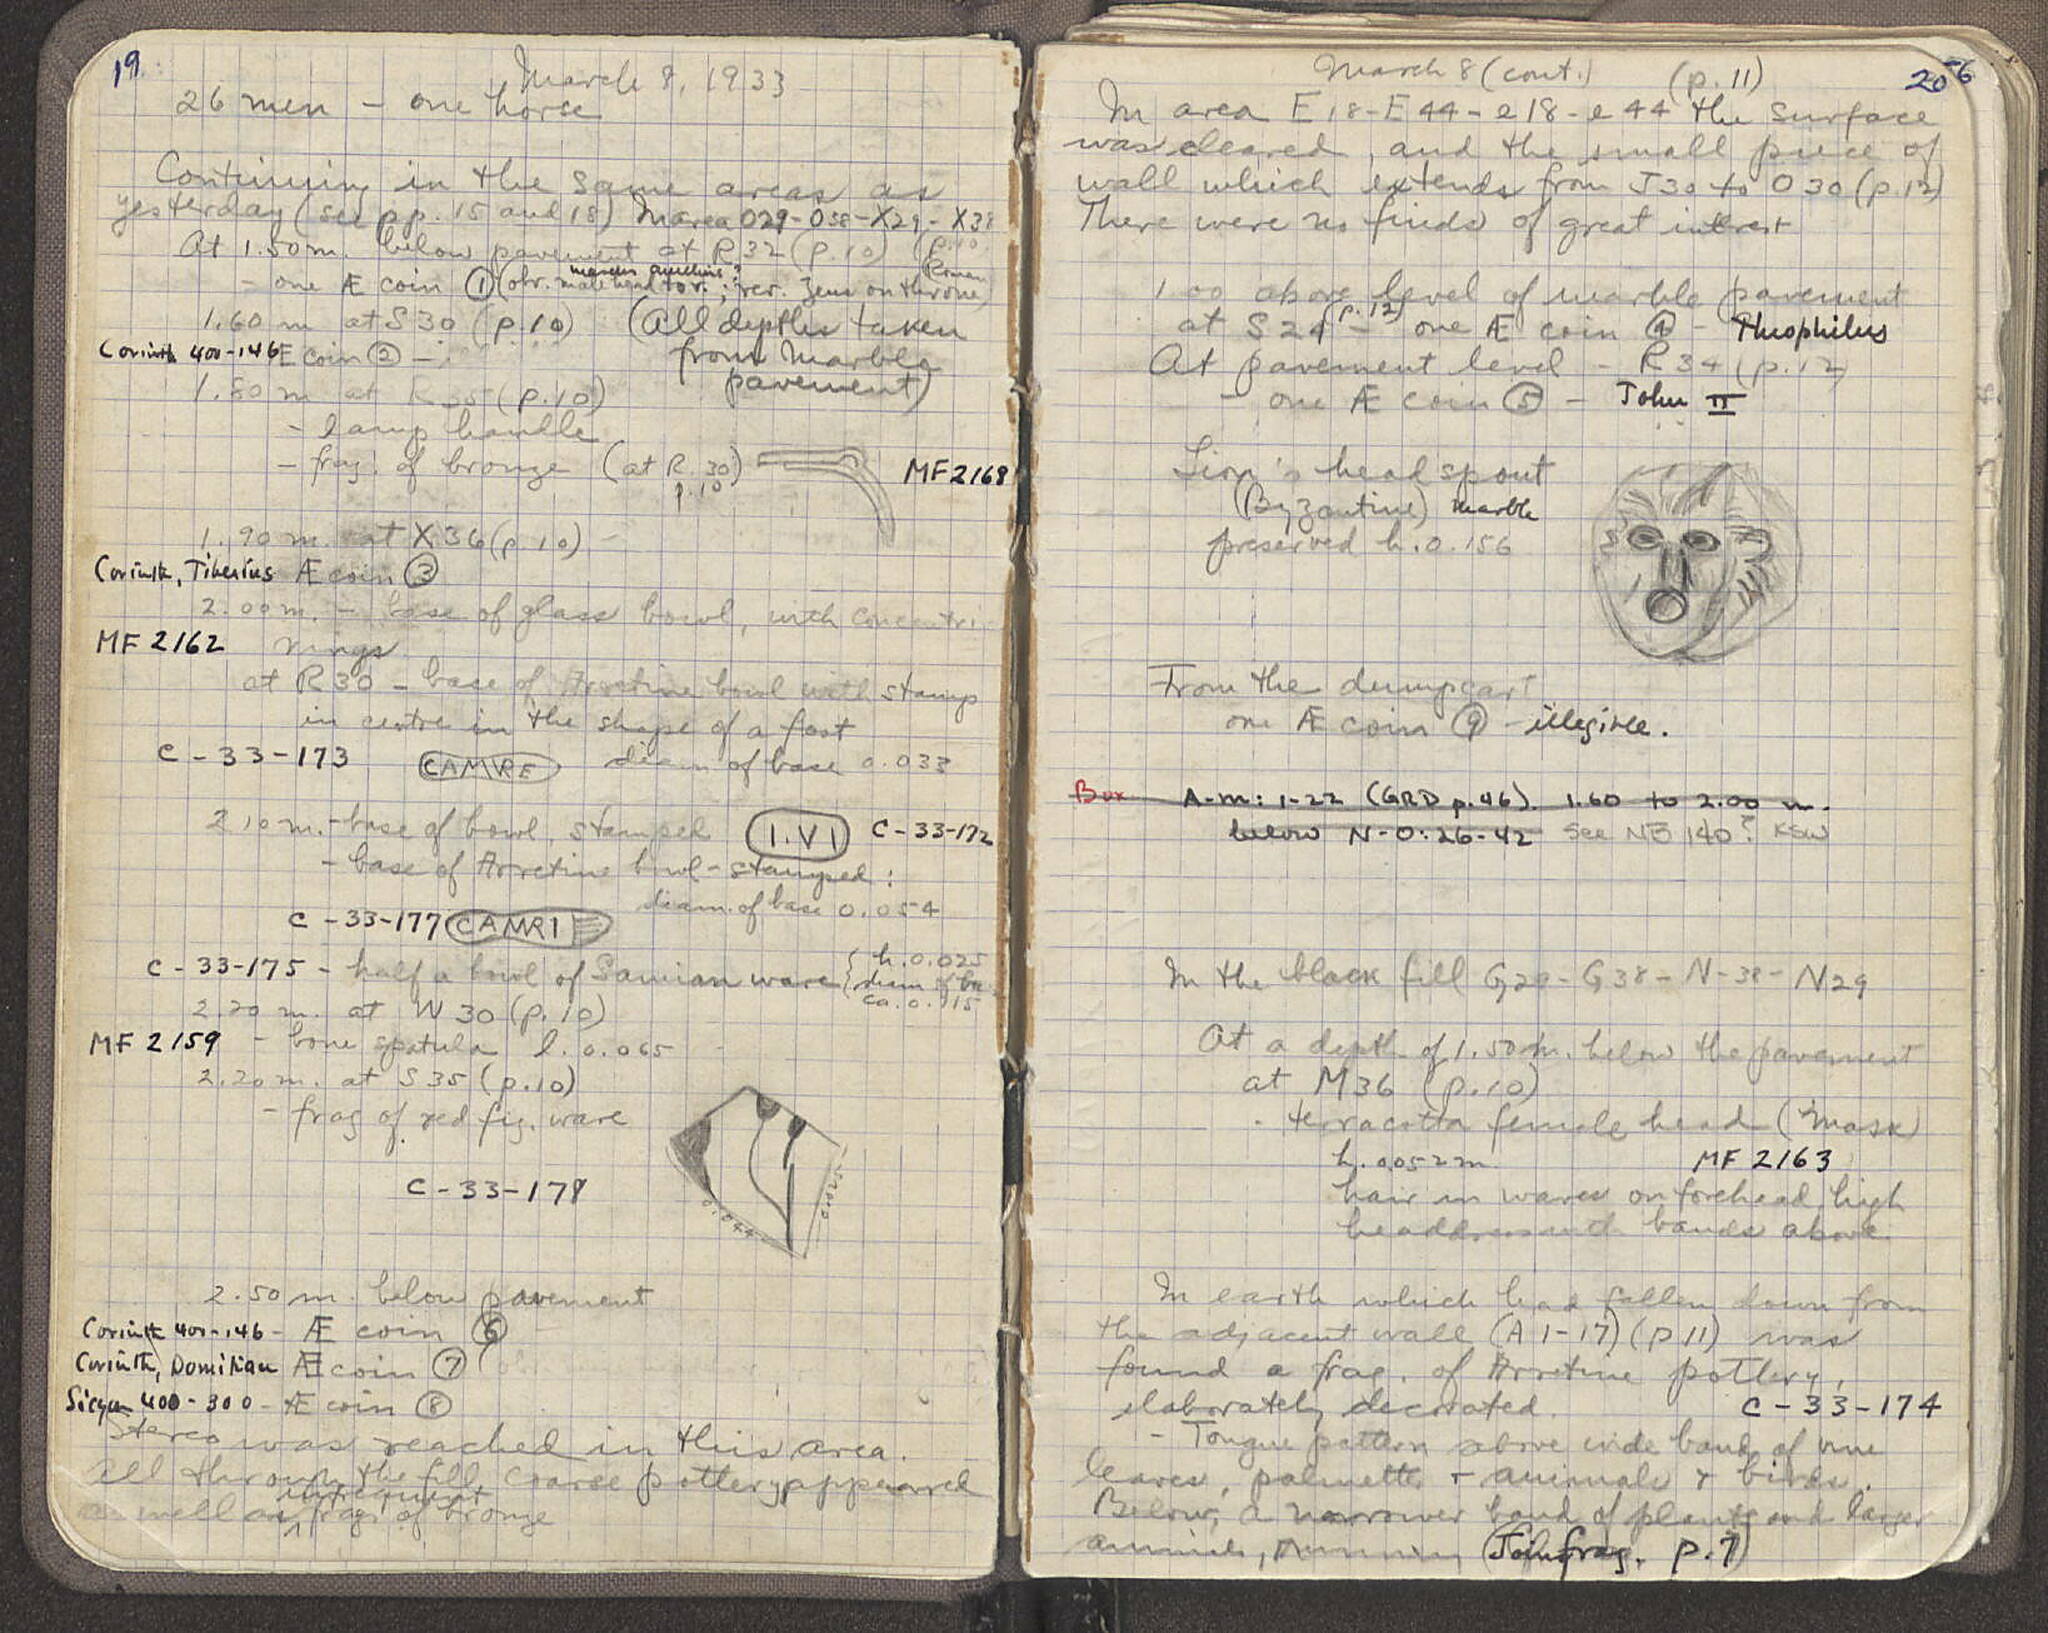 19
March 8, 1933
26 men - one horse
Continuing in the same areas as
yesterday (see pp. 15 and 18) In area O29-O38-X29-X38
(p. 10
At 1.50 m. below pavement at R32 (p. 10)
marcus aurelius? Roman
- one Æ coin ① (obv. male head to r.; rev. Zeus on throne)
1.60 m at S30 (p. 10) (All depths taken
from marble
pavement)
Corinth 400-146 Æ coin ② -
1.80 m at R35 (p. 10)
- lamp handle
- frag. of bronze (at R. 30) MF 2168
p. 10
1.90 m. at X36 (p. 10) -
Corinth, Tiberius Æ coin ③
2.00 m. - base of glass bowl, with concentric
MF 2162 rings
at R30 - base of Arretine bowl with stamp
in centre in the shape of a foot
C-33-173 CAMVRE diam of base 0.033
2.10 m. - base of bowl, stamped I.VI C-33-172
- base of Arretine bowl - stamped:
diam. of base 0.054
C-33-177 CAMRI
C-33-175 - half a bowl of Samian ware { h. 0.025
diam of
ca. 0.115
2.20 m. at W30 (p. 10)
MF 2159 - bone spatula l. 0.065
2.20 m. at S35 (p. 10)
- frag of red fig. ware
C-33-178
0.044
2.50 m. below pavement
Corinth 400-146 - Æ coin ⑥
Corinth, Domitian Æ coin ⑦
Sicyon 400-300 - Æ coin ⑧
Stereo was reached in this area.
All through the fill, coarse pottery appeared
infrequent
as well as frags of bronze
20 56
March 8 (cont.) (p. 11)
In area E18-E44-e18-e44 the surface
was cleared, and the small piece of
wall which extends from J30 to O30 (p. 12)
There were no finds of great interest
1.00 above level of marble pavement
at S24 (p. 12) - one Æ coin ④ - Theophilus
At pavement level - R34 (p. 12)
- one Æ coin ⑤ - John II
Lion's head spout
(Byzantine) marble
preserved h. 0.156
From the dumpcart
one Æ coin ⑨ - illegible.
Box A-m: 1-22 (GRD p. 46). 1.60 to 2.00 m.
below N-O: 26-42 See NB 140? KSW
In the black fill G29-G38-N-38-N29
At a depth of 1.50 m. below the pavement
at M36 (p. 10)
- terracotta female head (mask)
h. 0.052 m. MF 2163
hair in waves on forehead, high
headdress with bands above
In earth which had fallen down from
the adjacent wall (A 1-17) (p 11) was
found a frag. of Arretine pottery,
elaborately decorated. C-33-174
- Tongue pattern above wide band of vine
leaves, palmettes + animals + birds.
Below, a narrower band of plants and larger
animals, running (Join frag. p. 7)